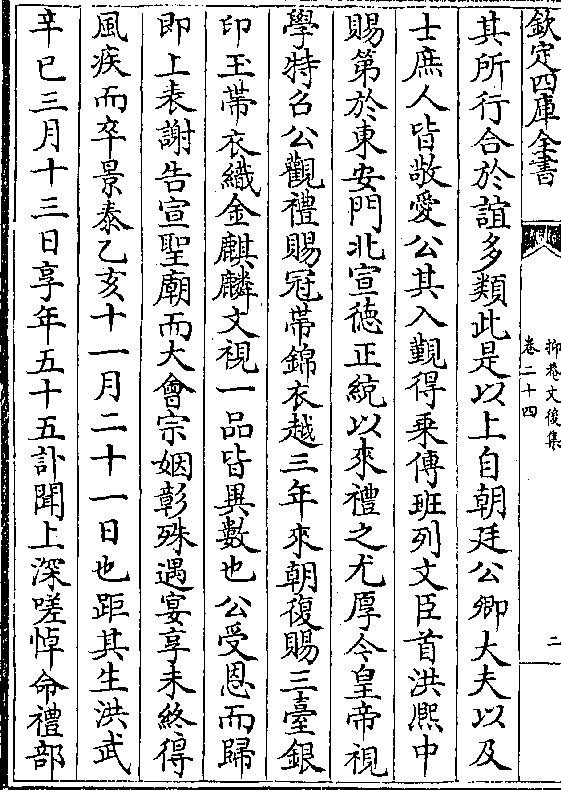 欽定四庫全書
抑菴文後集
卷二十四
二
其所行合於誼多類此是以上自朝廷公卿大夫以及
士庶人皆敬愛公其入覲得乘傳班列文臣首洪熙中
賜第於東安門北宣徳正統以來禮之尤厚今皇帝視
學特召公觀禮賜冠帶錦衣越三年來朝復賜三臺銀
印玉帶衣織金麒麟文視一品皆異數也公受恩而歸
即上表謝告宣聖廟而大會宗姻彰殊遇宴享未終得
風疾而卒景泰乙亥十一月二十一日也距其生洪武
辛巳三月十三日享年五十五訃聞上深嗟悼命禮部